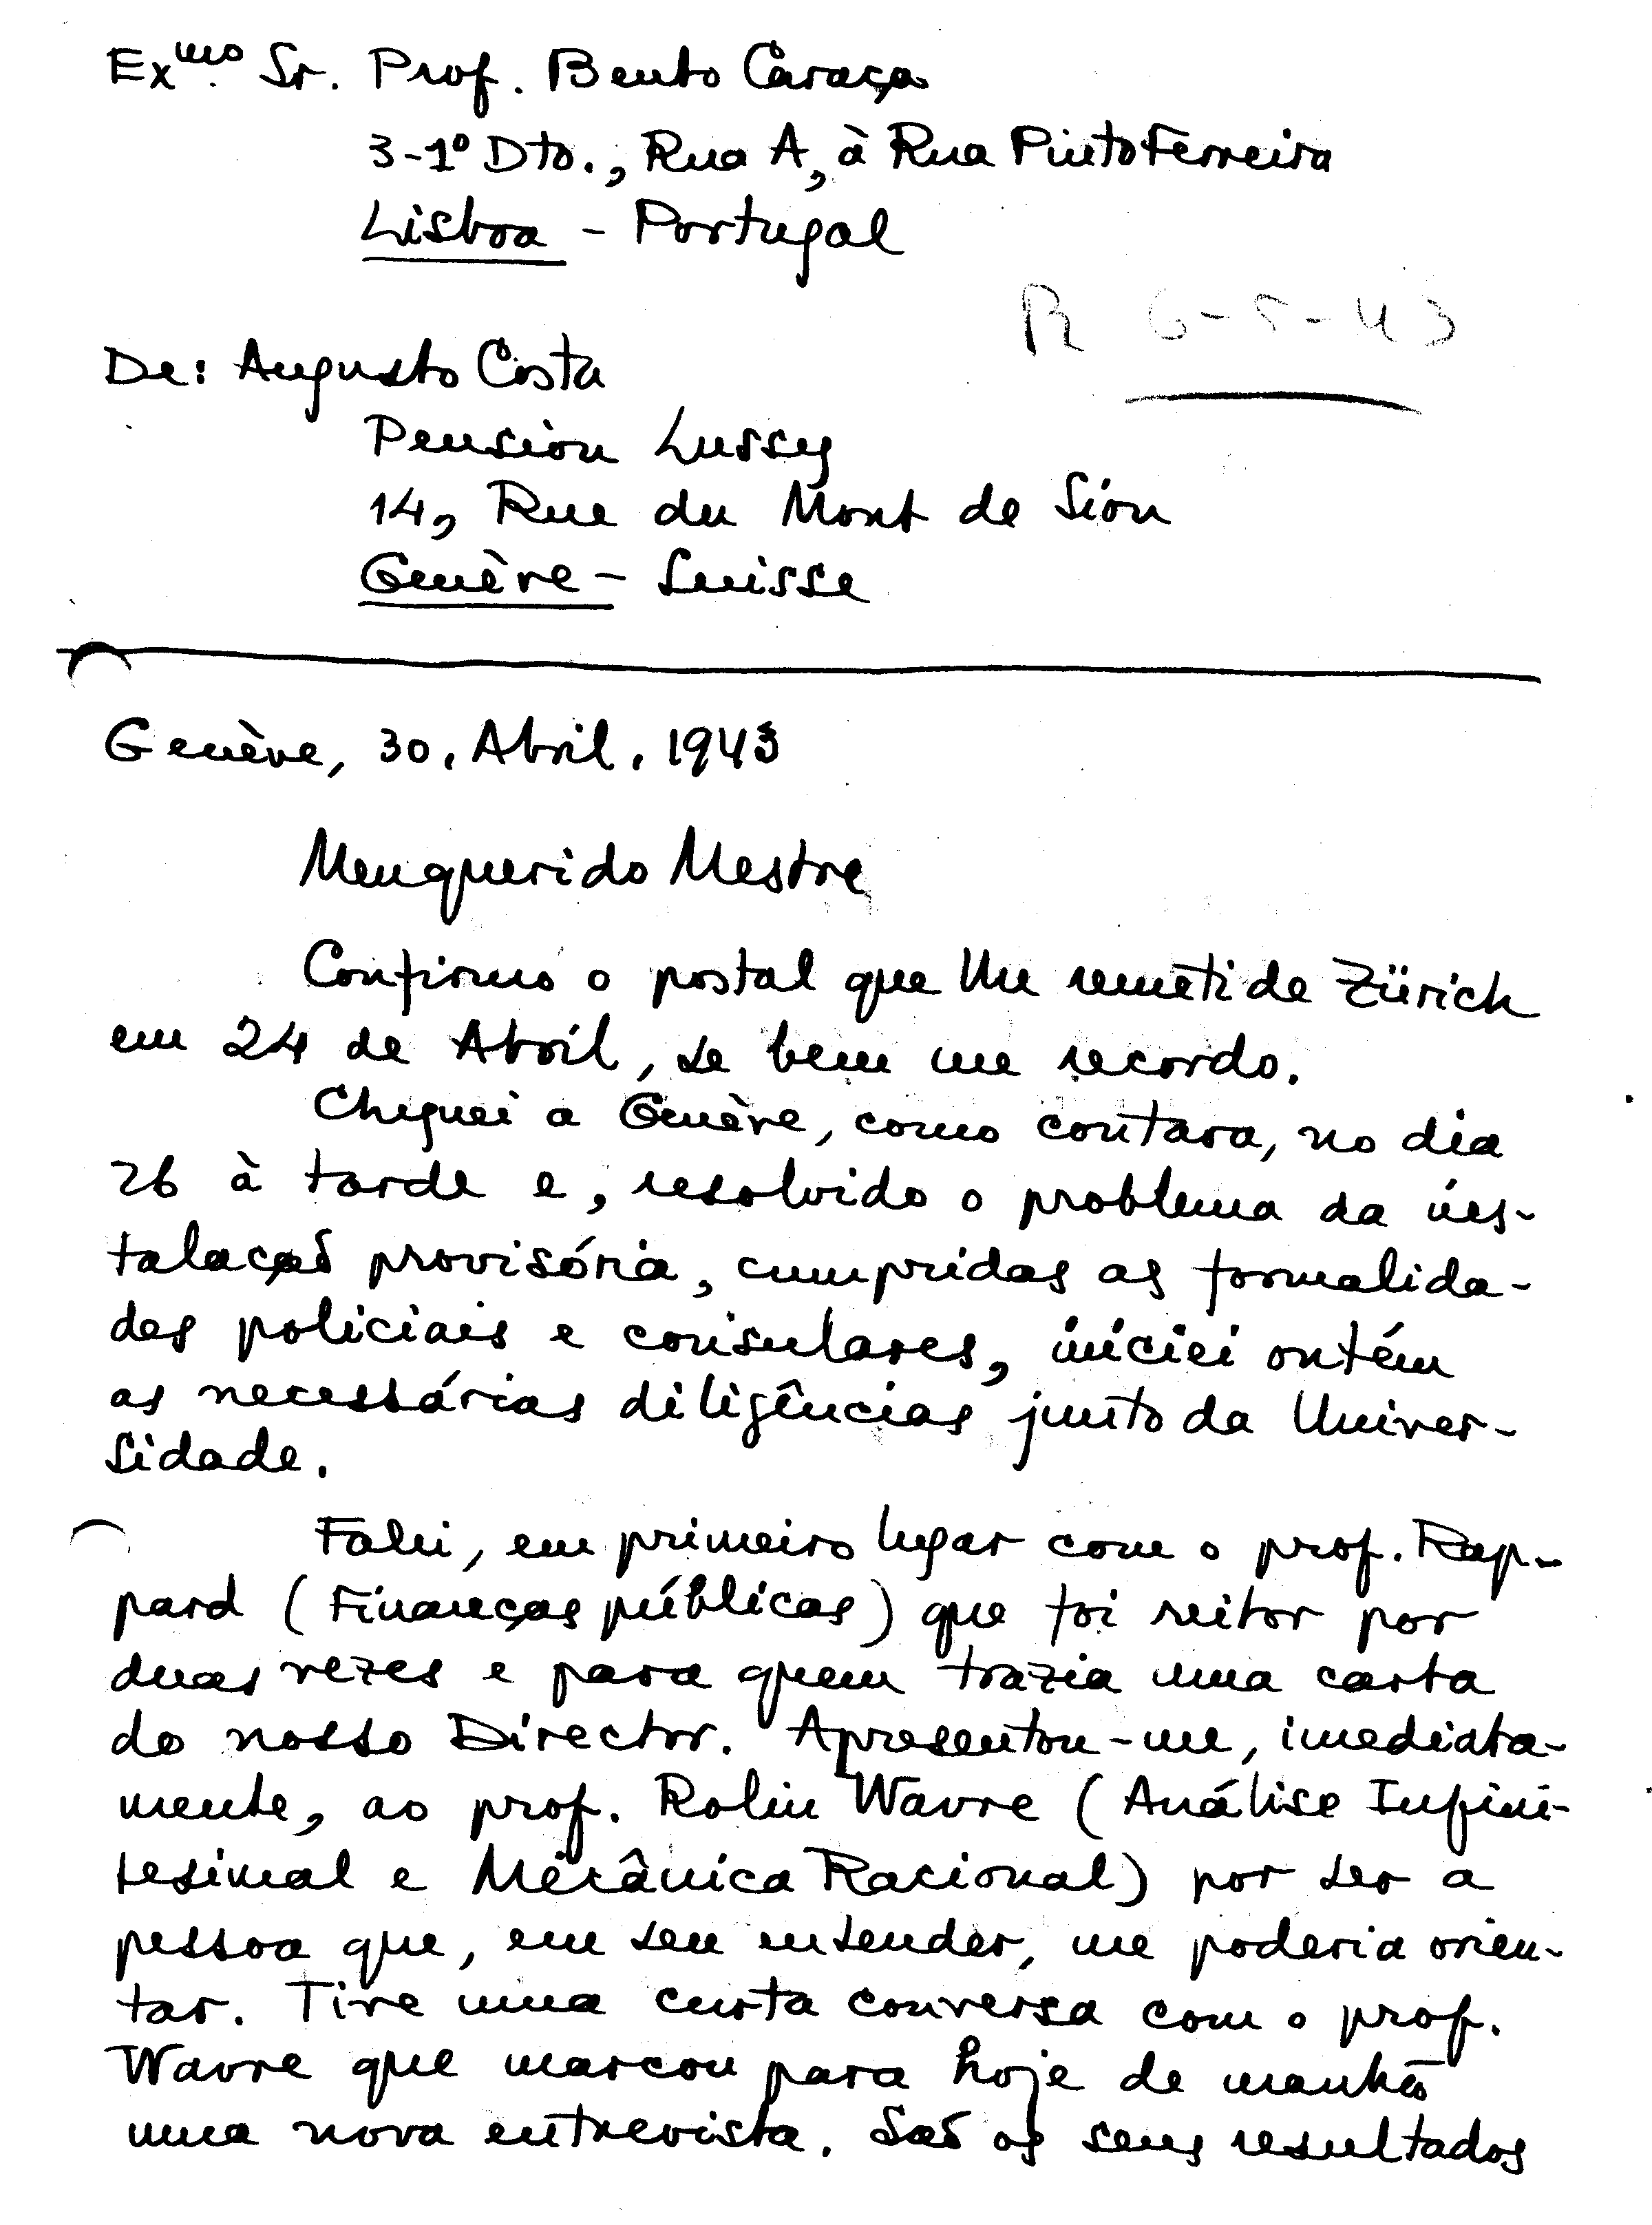 Exmo. Sr. Prof. Bento Caraça
3-1º Dto., Rua A, à Rua Pinto Ferreira
Lisboa - Portugal
R 6-5-43
De: Augusto Costa
Pension Lussy
14, Rue du Mont de Sion
Genève - Suisse
Genève, 30. Abril. 1943
Meu querido Mestre
Confirmo o postal que lhe remeti de Zürich
em 24 de Abril, se bem me recordo.
Cheguei a Genève, como contara, no dia
26 à tarde e, resolvido o problema da ins-
talação provisória, cumpridas as formalida-
des policiais e consulares, iniciei ontém
as necessárias diligências junto da Univer-
sidade.
Falei, em primeiro lugar com o prof. Rap-
pard (Finanças públicas) que foi reitor por
duas vezes e para quem trazia uma carta
do nosso Director. Apresentou-me, imediata-
mente, ao prof. Rolin Wavre (Análise Infini-
tesimal e Mecânica Racional) por ser a
pessoa que, em seu entender, me poderia orien-
tar. Tive uma curta conversa com o prof.
Wavre que marcou para hoje de manhã
uma nova entrevista. São os seus resultados